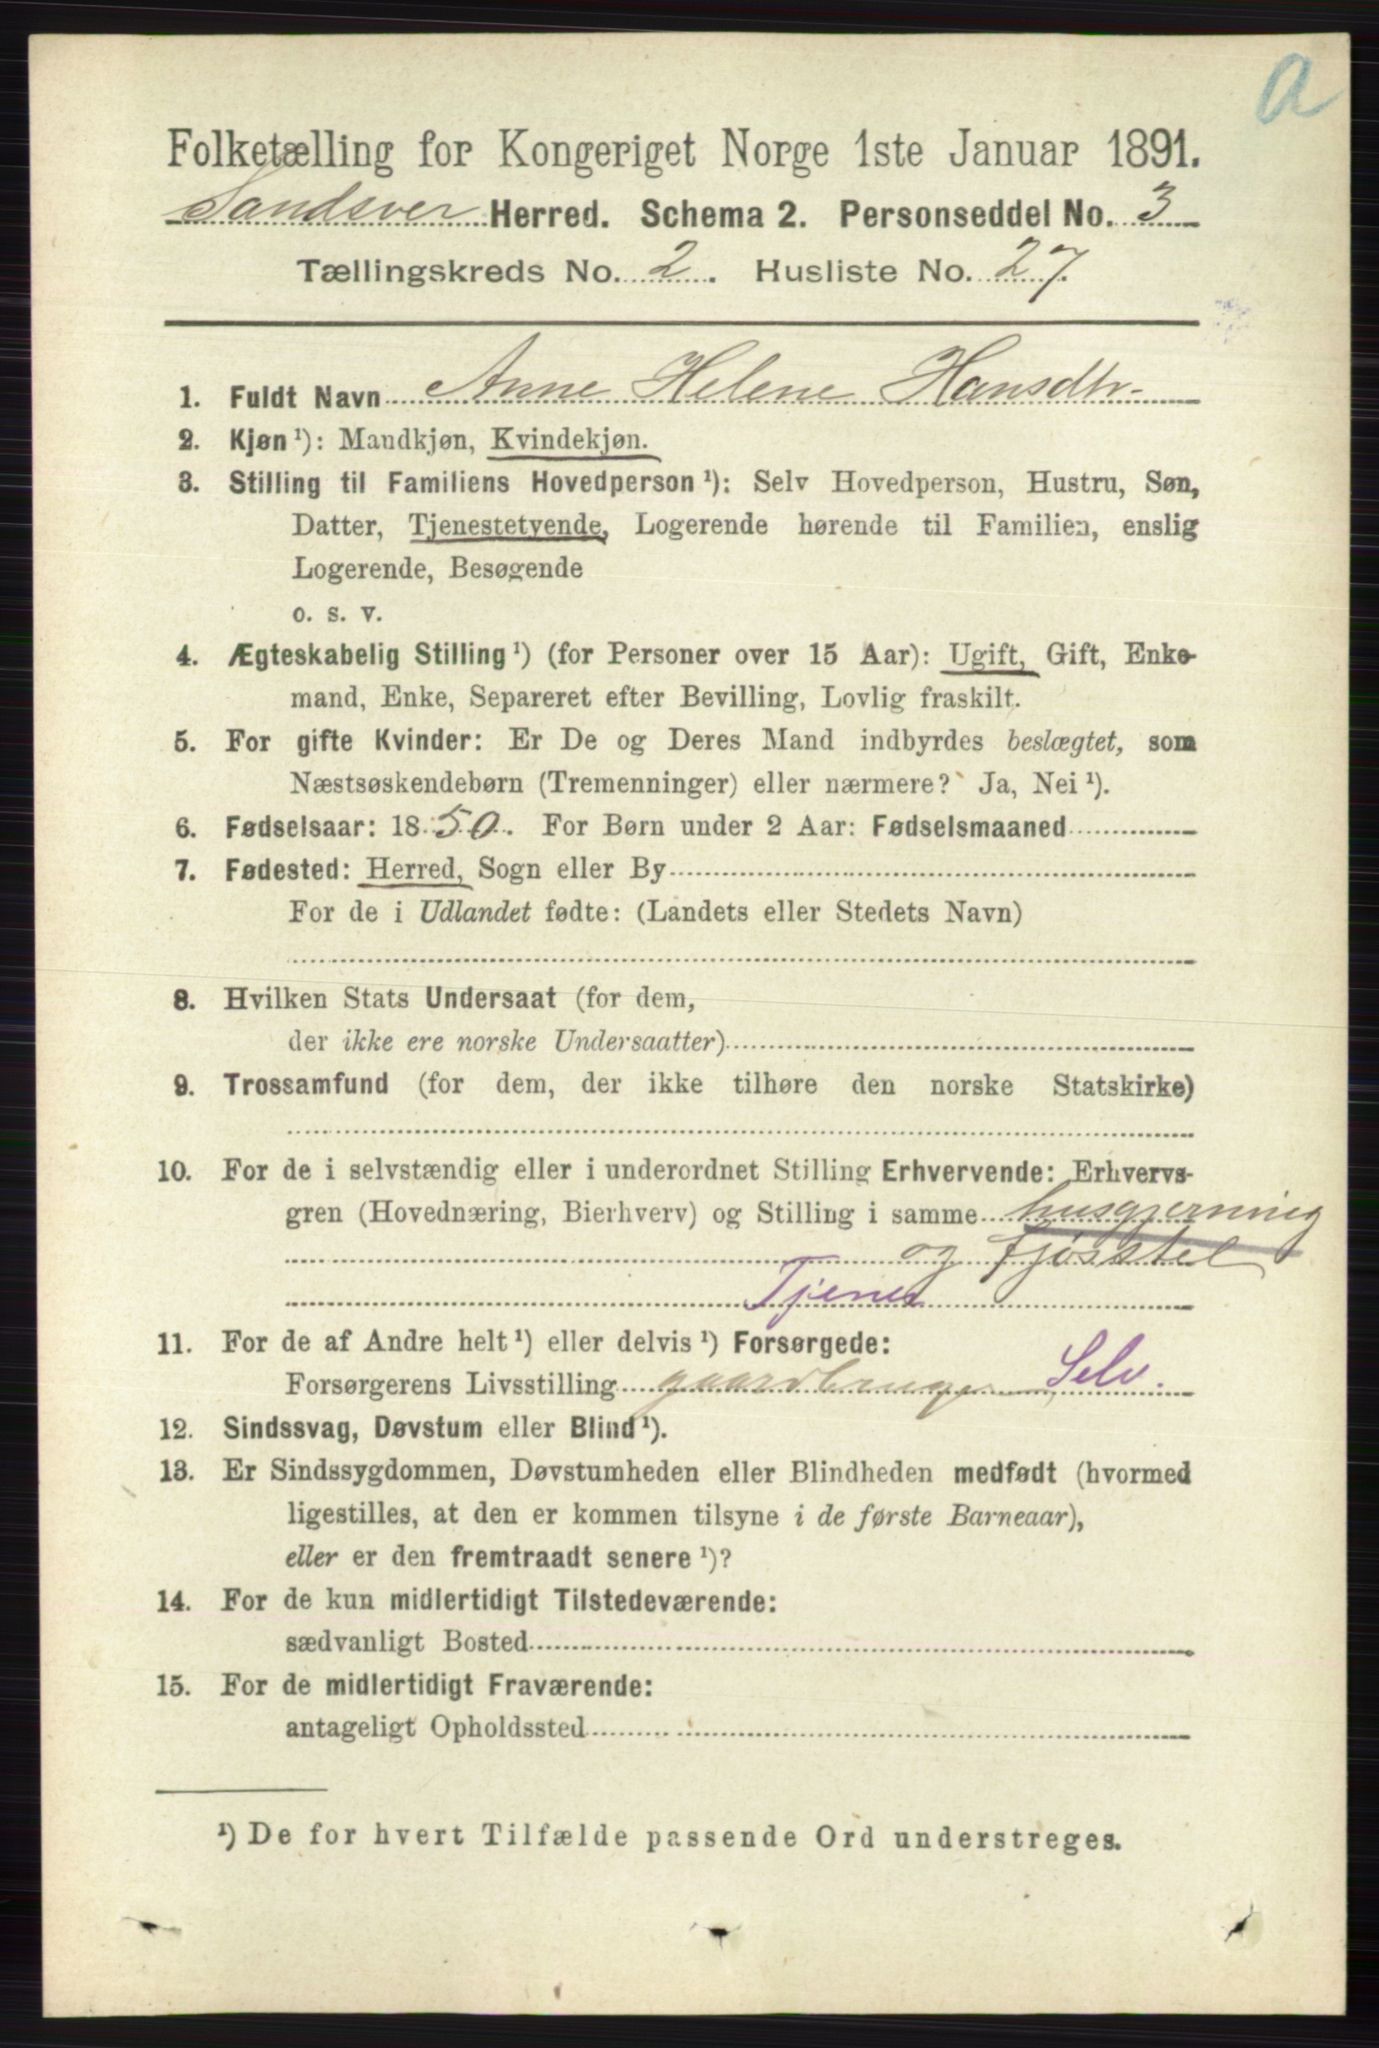 a
Folketælling for Kongeriget Norge 1ste Januar 1891.
Sandsver Herred. Schema 2. Personseddel No. 3
Tællingskreds No. 2. Husliste No. 27.
1. Fuldt Navn Anne Helene Hansdtr.
2. Kjøn ¹): Mandkjøn, Kvindekjøn.
3. Stilling til Familiens Hovedperson ¹): Selv Hovedperson, Hustru, Søn,
Datter, Tjenestetyende, Logerende hørende til Familien, enslig
Logerende, Besøgende
o. s. v.
4. Ægteskabelig Stilling ¹) (for Personer over 15 Aar): Ugift, Gift, Enke-
mand, Enke, Separeret efter Bevilling, Lovlig fraskilt.
5. For gifte Kvinder: Er De og Deres Mand indbyrdes beslægtet, som
Næstsøskendebørn (Tremenninger) eller nærmere? Ja, Nei ¹).
6. Fødselsaar: 1850. For Børn under 2 Aar: Fødselsmaaned
7. Fødested: Herred, Sogn eller By
For de i Udlandet fødte: (Landets eller Stedets Navn)
8. Hvilken Stats Undersaat (for dem,
der ikke ere norske Undersaatter)
9. Trossamfund (for dem, der ikke tilhøre den norske Statskirke)
10. For de i selvstændig eller i underordnet Stilling Erhvervende: Erhvervs-
gren (Hovednæring, Bierhverv) og Stilling i samme husgjerning
og fjøsstel
Tjener
11. For de af Andre helt ¹) eller delvis ¹) Forsørgede:
Forsørgerens Livsstilling gaardbruger Selv.
12. Sindssvag, Døvstum eller Blind ¹).
13. Er Sindssygdommen, Døvstumheden eller Blindheden medfødt (hvormed
ligestilles, at den er kommen tilsyne i de første Barneaar),
eller er den fremtraadt senere ¹)?
14. For de kun midlertidigt Tilstedeværende:
sædvanligt Bosted
15. For de midlertidigt Fraværende:
antageligt Opholdssted
¹) De for hvert Tilfælde passende Ord understreges.